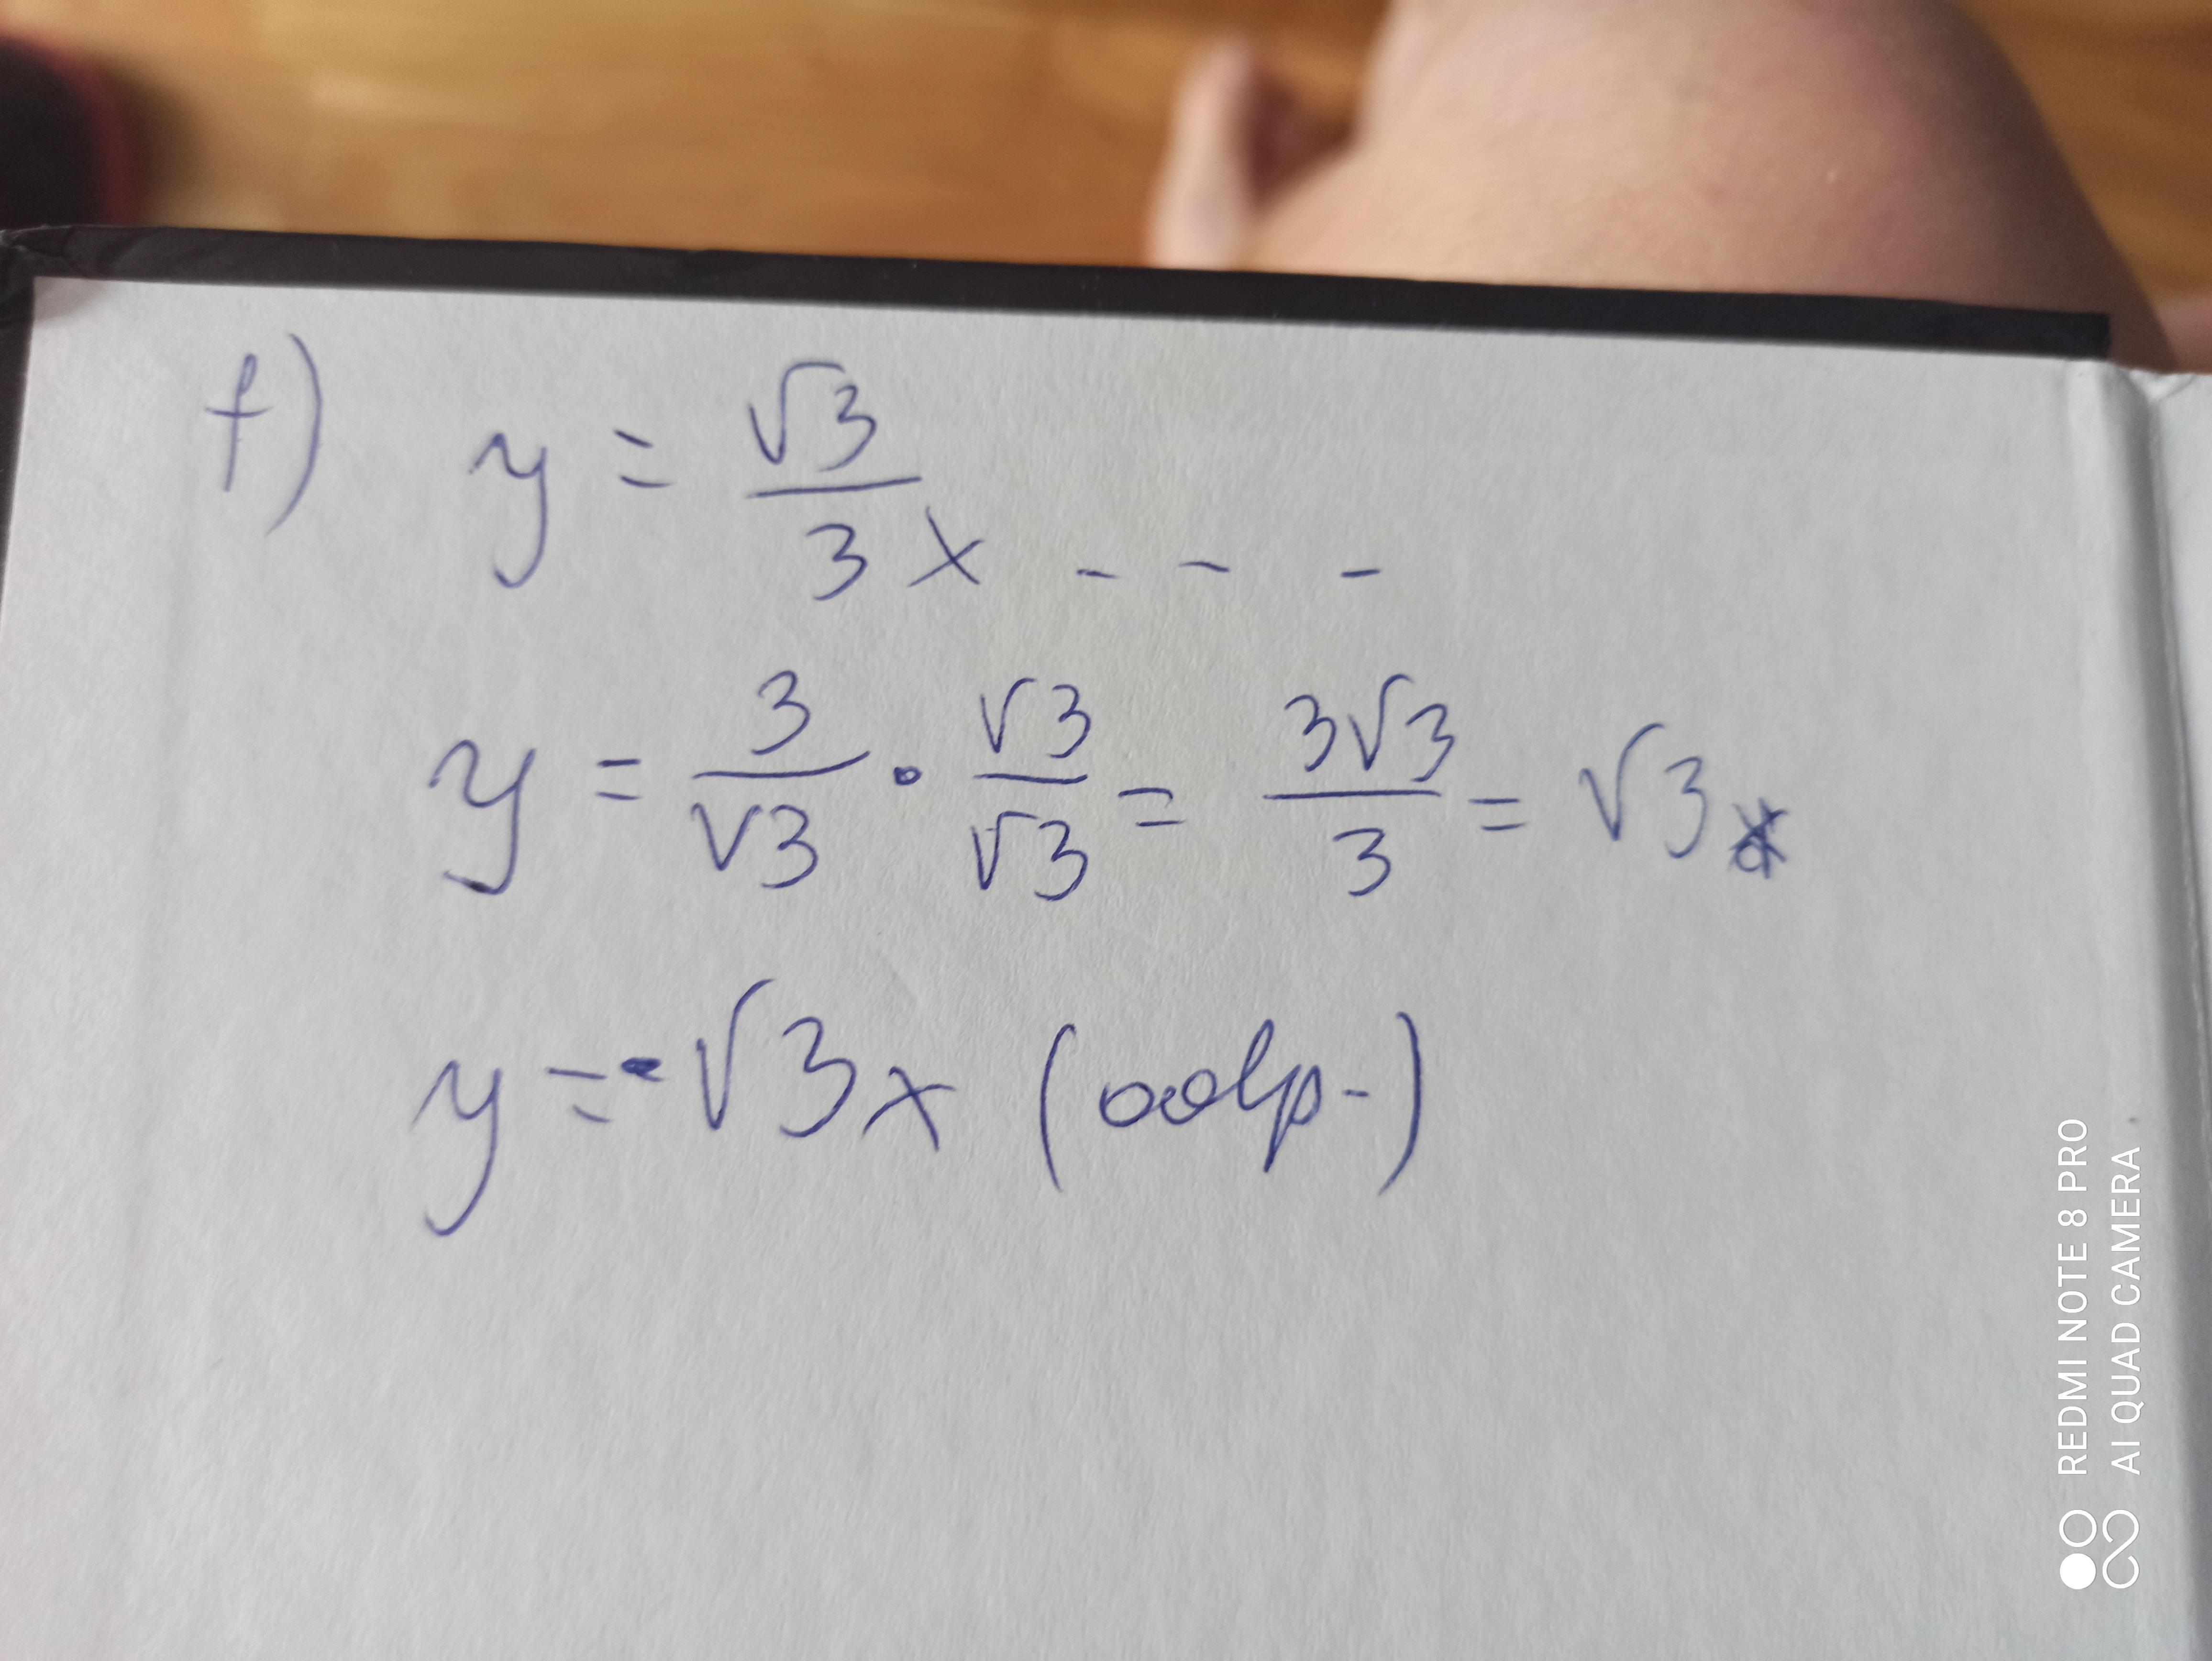 f) y = √3/3 x - - -
y = 3/√3 · √3/√3 = 3√3/3 = √3
y = -√3x (odp-)
REDMI NOTE 8 PRO
AI QUAD CAMERA